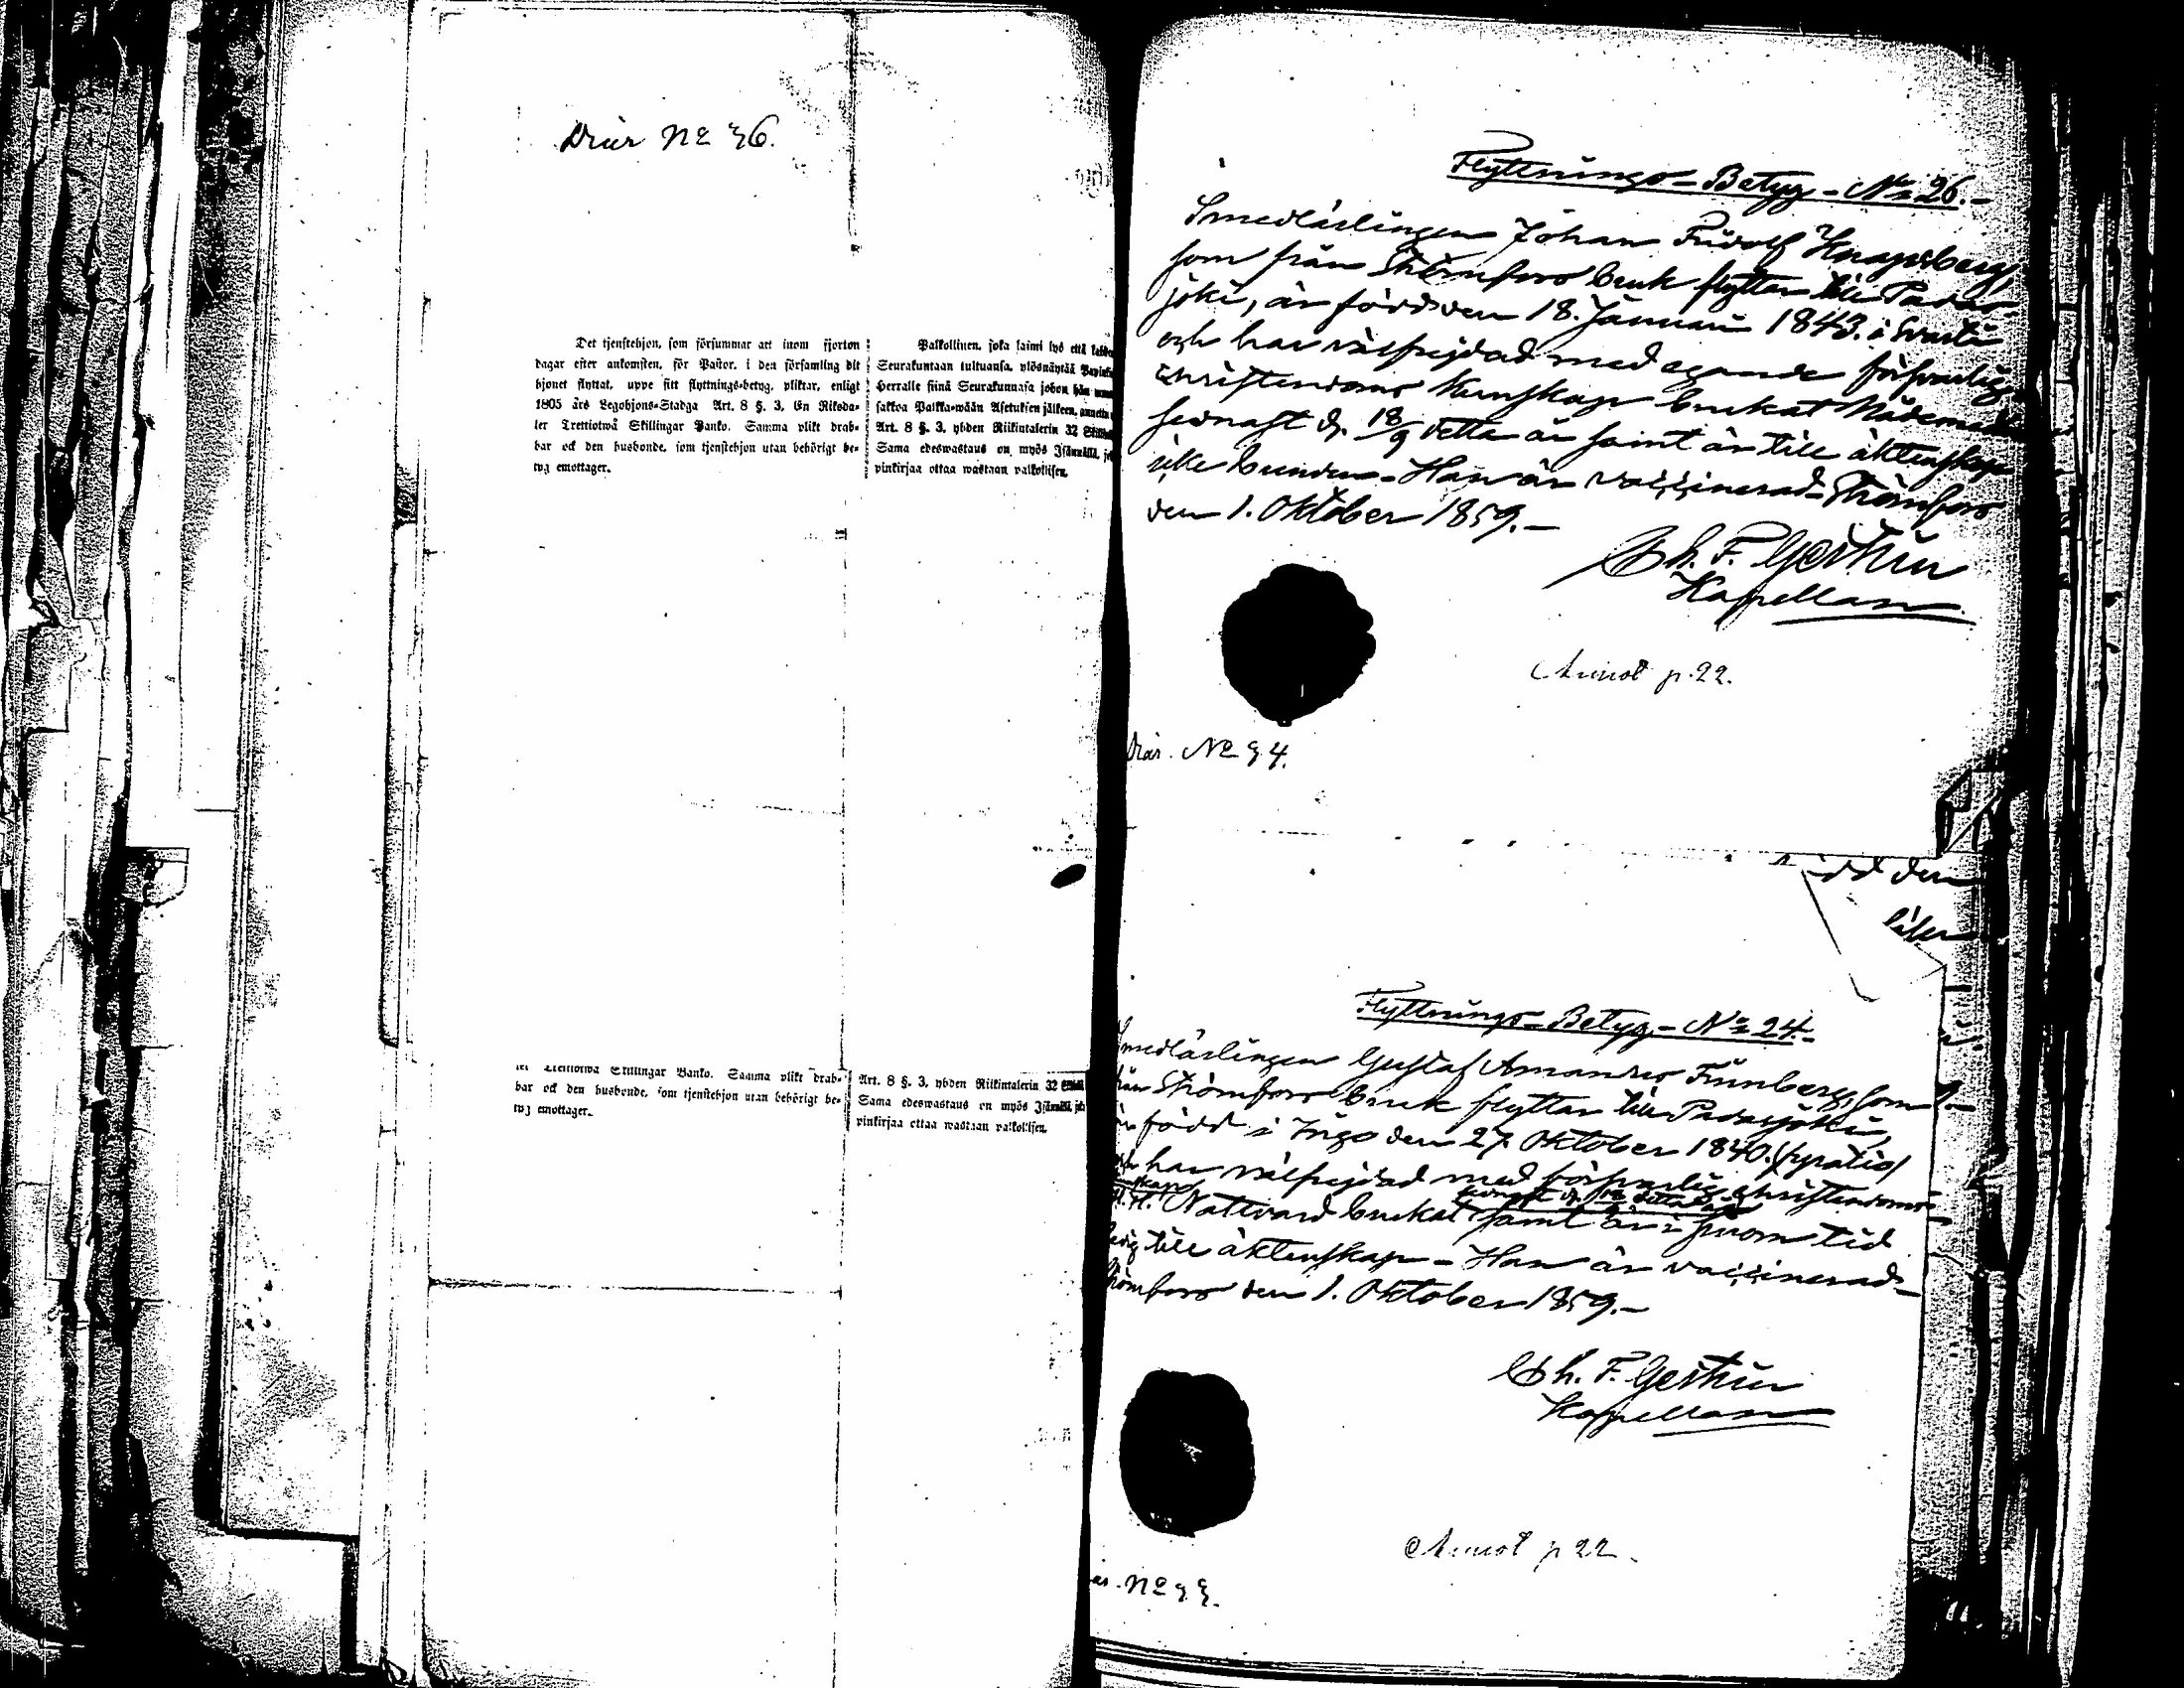 Diar Nº 36.
Det tjenstehjon, som försummar att inom fjorton
dagar efter ankomsten, för Pastor, i den församling dit
hjonet flyttat, uppe sitt flyttnings-betyg, pliktar, enligt
1805 års Legohjons-Stadga Art. 8 §. 3, En Riksda-
ler Trettiotwå Skillingar Banko. Samma plikt drab-
bar ock den husbonde, som tjenstehjon utan behörigt be-
tyg emottager.
Palkollinen, joka laimi lyö että
Seurakuntaan tultuansa, ylösnäytää
Herralle siinä Seurakunnasa johon hän
sakkoa Palkka-wään Asetuksen jälkeen,
Art. 8 §. 3, yhden Riikintalerin 32
Sama edeswastaus on myös Isännällä,
pinkirjaa ottaa wastaan palkollisen.
Trettiotwå Skillingar Banko. Samma plikt drab-
bar ock den husbonde, som tjenstehjon utan behörigt be-
tyg emottager.
Art. 8 §. 3, yhden Riikintalerin 32
Sama edeswastaus on myös Isännällä,
pinkirjaa ottaa wastaan palkollisen.
Flyttnings-Betyg-Nº 26.-
Smedlärlingen Johan Fridolf Knapsberg,
som från Strömfors bruk flyttar till Padas-
joki, är född den 18. Januari 1843. i
och har välfrejdad med egande försvarlig
christendoms kunskap brukat
sednast d. 18/9 detta år samt är till äktenskap
icke bunden - Han är vaccinerad - Strömfors
den 1. Oktober 1859.-
Ch. F. Gestrin
Kapellan
Annot p. 22.
Diar. Nº 34.
dd den
Flyttnings-Betyg-Nº 24.-
Smedlärlingen Gustaf Amandus Finnberg, som
från Strömfors bruk flyttar till Padasjoki,
är född i Ingo den 27. Oktober 1840. (fyratio)
och har välfrejdad med försvarlig christendoms-
kunskap H. H. Nattvard brukat sednast d. detta år samt är i sinom tid
ledig till äktenskap - Han är vaccinerad-
Strömfors den 1. Oktober 1859.-
Ch. F. Gestrin
Kapellan
Annot p 22.
Nº 33.